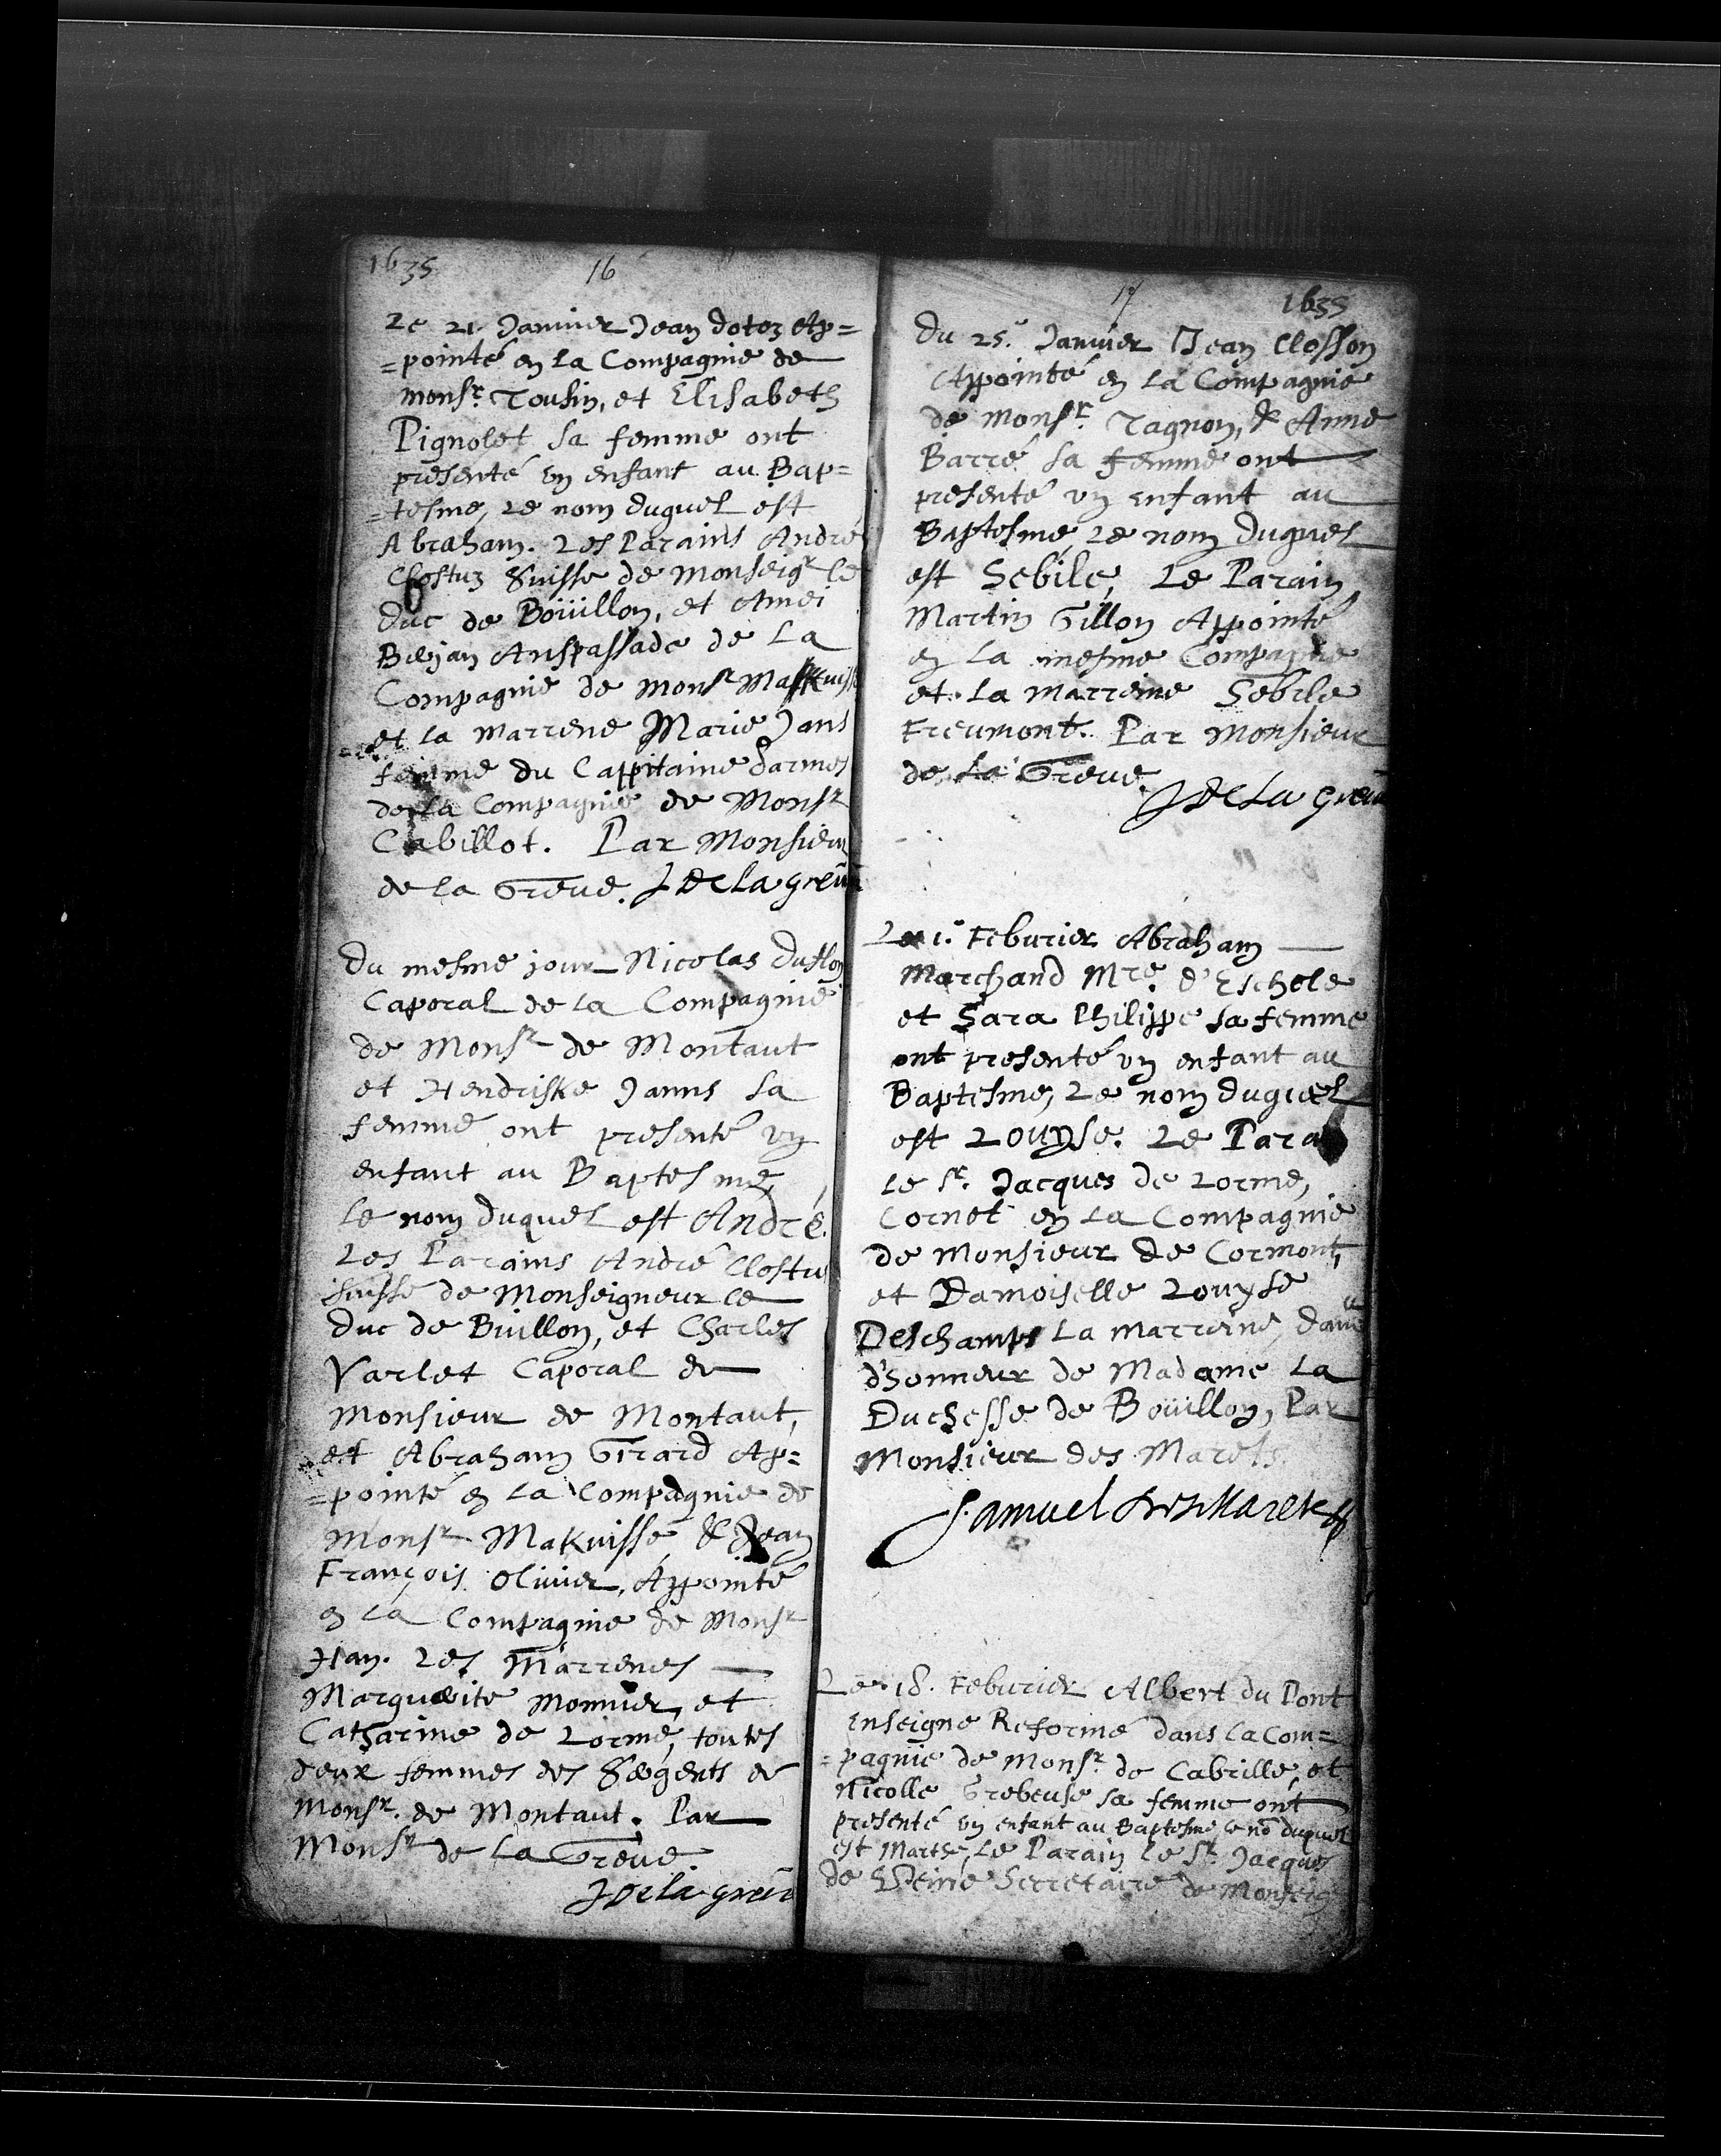 1635
16
Le 21 Janvier Jean dotez Ap=
=pointé en la Compagnie de
monsr. Tousin, et Elisabeth
Pignolet sa femme ont
presenté un enfant au Bap=
=tesme, Le nom duquel est
Abraham. Les Parains André
Clostuz Suisse de monseigr le
Duc de Boüillon, et Amei
Anspassade de La
Compagnie de monsr
et la marrene Marie Jans
femme du Cappitaine darmes
de la Compagnie de Monsr
Cabillot. Par Monsieur
de la Greve. J De la greue
Du mesme jour Nicolas duflon
Caporal de la Compagnie
de Monsr de Montaut
et Hendriske Janns sa
femme ont presenté vn
enfant au Baptesme,
le nom duquel est André.
Les Parains André Clostu
suisse de Monseigneur le
duc de Buillon, et Charles
Varlet Caporal de
Monsieur de Montaut,
et Abraham Girard Ap=
=pointé en la Compagnie de
Monsr Makuisse & Jean
François Olivier, Appointé
en la Compagnie de Monsr
Han. Les Marrenes
Marguerite Monnier, et
Catharine de Lorme, toutes
deux femmes des Sergents de
Monsr. de Montaut. Par
Monsr de la Greve.
J De la greue
17
1635
Du 25e. Janvier Jean Closson
Appointé en la Compagnie
de Monsr. Tagnon, & Anne
Barré sa femme ont
presenté vn enfant au
Baptesme, Le nom duquel
est Sebile, Le Parain
Martin Gillon Appointé
en la mesme Compagnie
et la marreine Sebile
Freumont. Par Monsieur
de la Greve.
J De La greue
Le 1. Feburier Abraham
Marchand Mre. d'Eschole
et Sara Philippe sa femme
ont presenté vn enfant au
Baptesme, Le nom duquel
est Louyse. Le Para
le Sr. Jacques de Lorme,
Cornet en la Compagnie
de Monsieur de Cormont,
et Damoiselle Louyse
Deschamps La marreine, dame
d'honneur de Madame La
Duchesse de Boüillon, Par
Monsieur des Marets.
Samuel Des Marets
Le 18. Feburier Albert du Pont
Enseigne Reformé dans la Com=
=pagnie de Monsr. de Cabrille, et
Nicolle Grebeuse sa femme ont
presenté vn enfant au Baptesme, le nō duquel
est Marthe, Le Parain le Sr. Jacques
de Secretaire de Monseig